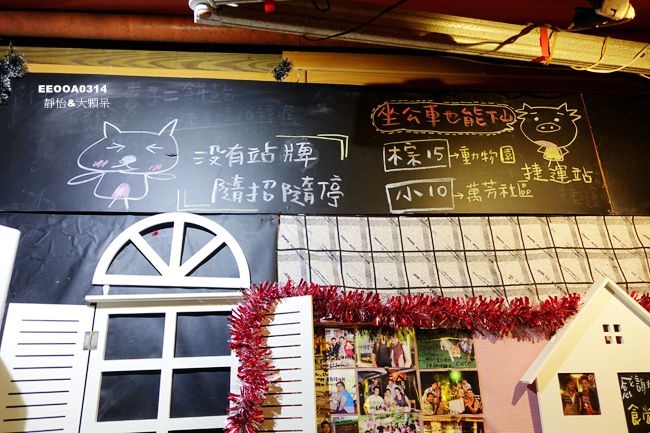 EEOOA0314
靜怡&大顆呆
没有站牌
隨招隨停
坐公車也能下山
棕15→動物園
小10→萬芳社區
捷運站